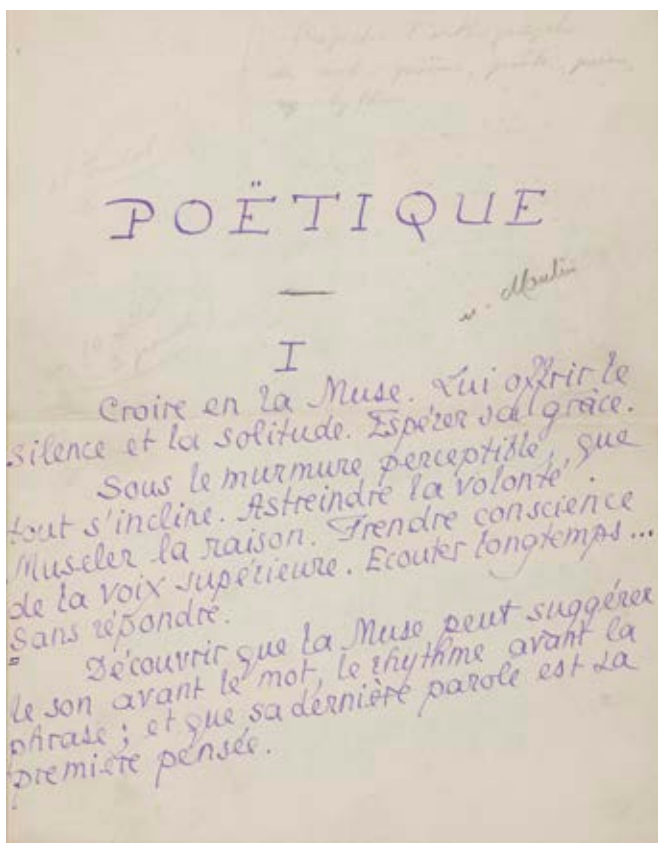 Respecter l'orthographe
POËTIQUE
v. Moulin
I
Croire en la Muse. Lui offrir le
silence et la solitude. Espérer sa grâce.
Sous le murmure perceptible, que
tout s'incline. Astreindre la volonté.
Museler la raison. Prendre conscience
de la voix supérieure. Ecouter longtemps...
Sans répondre.
Découvrir que la Muse peut suggérer
le son avant le mot, le rhythme avant la
phrase ; et que sa dernière parole est La
première pensée.